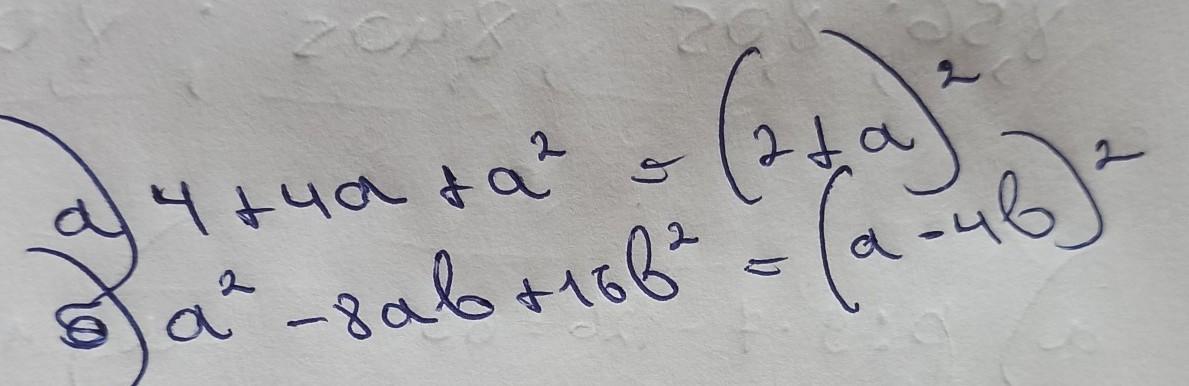 а) 4 + 4a + a² = (2 + a)²
б) a² - 8ab + 16b² = (a - 4b)²